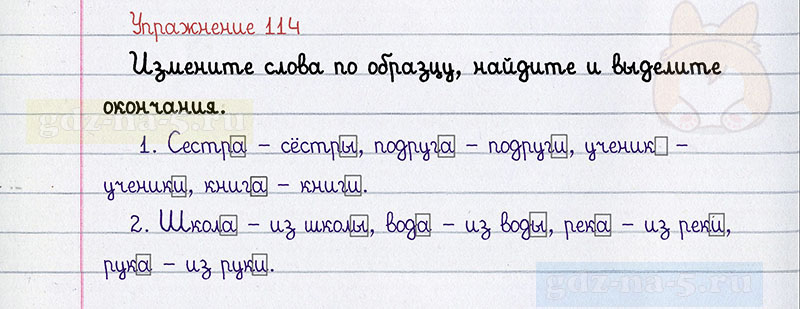 Упражнение 114
Измените слова по образцу, найдите и выделите
окончания.
gdz-na-5.ru
1. Сестра – сёстры, подруга – подруги, ученик –
ученики, книга – книги.
2. Школа – из школы, вода – из воды, река – из реки,
рука – из руки.
gdz-na-5.ru